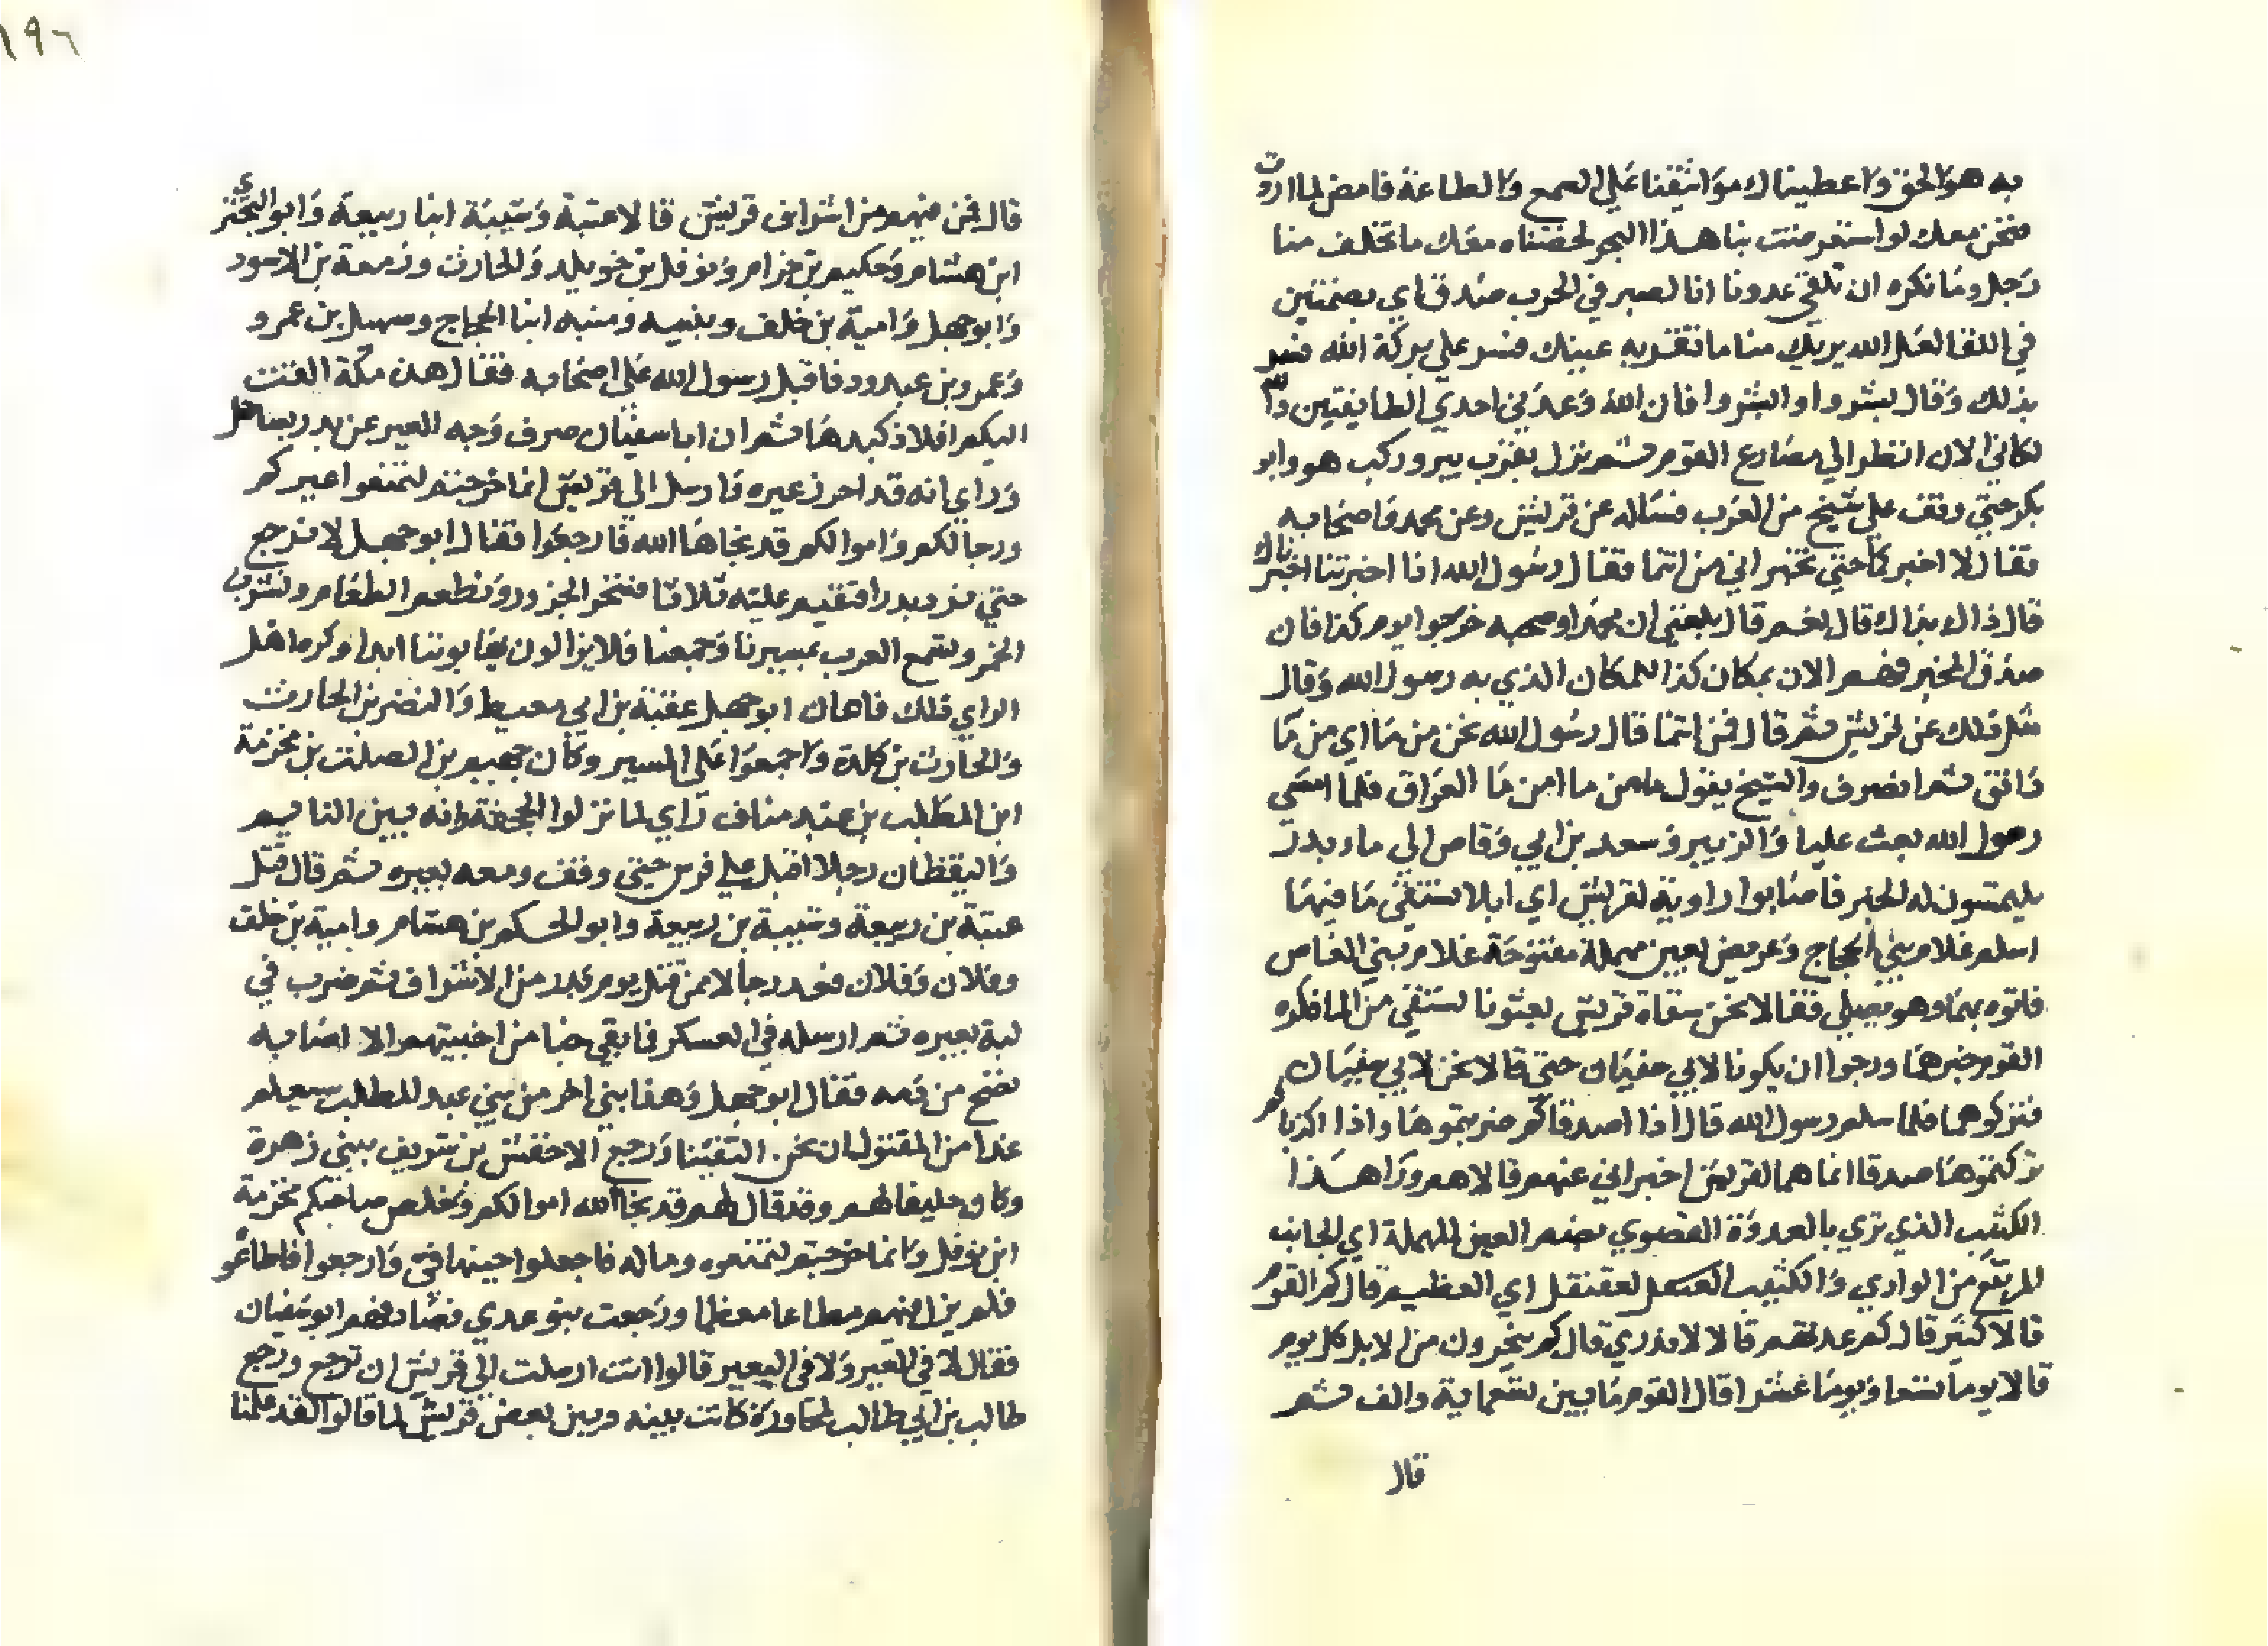 به هو الحق واعطيناك مواثيقنا علي السمع والطاعة فامض لما اردت
فنحن معك لو استعرضت بنا هذا البحر لخضناه معك ما تخلف منا
رجل وما نكره ان تلقي عدونا انا لصبر في الحرب صدق اي بضمتين
في اللقا لعل الله يريك منا ما تقر به عينك فسر علي بركة الله فسر
بذلك وقال بشروا وابشروا فان الله وعدني احدي الطايفتين والله
لكاني الان انظر الي مصارع القوم ثم نزل بقرب بير وركب هو وابو
بكر حتي وقف علي شيخ من العرب فساله عن قريش وعن محمد واصحابه
فقال لا اخبركما حتي تخبراني من انتما فقال رسول الله اذا اخبرتنا اخبرناك
قال ذاك بذاك قال نعم قال بلغني ان محمدا وصحبه خرجوا يوم كذا فان
صدق المخبر فهم الان بمكان كذا للمكان الذي به رسول الله وقال
مثل ذلك عن قريش ثم قال فمن انتما قال رسول الله نحن من ما اي من ما
دافق ثم انصرف والشيخ يقول ما من ما امن ما العراق فلما امسي
رسول الله بعث عليا والزبير وسعد بن ابي وقاص الي ماء بدر
يلتمسون له الخبر فاصابوا راوية لقريش اي ابلا يستقي ما فيها
اسلم غلام بني الحجاج وعريض بعين مهملة مفتوحة غلام بني العاص
فاتوه بهما وهو يصلي فقالا نحن سقاة قريش بعثونا نستقي من الما فكره
القوم خبرهما ورجوا ان يكونا لابي سفيان حتي قالا نحن لابي سفيان
فتركوهما فلما سلم رسول الله قال اذا اصدقاكم ضربتموها واذا اكذباكم
تركتموها صدقا انما هما لقريش اخبراني عنهم قالا هم ورا هذا
الكثيب الذي تري بالعدوة القصوي بضم العين المهملة اي الجانب
المرتفع من الوادي والكثيب العقنقل اي العظيم قال كم القوم
قالا كثير قال كم عدتهم قالا لا ندري قال كم ينحرون من الابل كل يوم
قالا يوما تسعا ويوما عشرا قال القوم ما بين تسعماية والف ثم
قال
١٩٦
قال فمن فيهم من اشراف قريش قالا عتبة وشيبة ابنا ربيعة وابو البختري
ابن هشام وحكيم بن حزام ونوفل بن خويلد والحارث وزمعة بن الاسود
وابو جهل وامية بن خلف ونبيه ومنبه ابنا الحجاج وسهيل بن عمرو
وعمرو بن عبد ود فاقبل رسول الله علي اصحابه فقال هذه مكة القت
اليكم افلاذ كبدها ثم ان ابا سفيان صرف وجه العير عن بدر بساحل
وراي انه قد احرز عيره فارسل الي قريش انما خرجتم لتمنعوا عيركم
ورجالكم واموالكم قد نجاها الله فارجعوا فقال ابو جهل لا نرجع
حتي نرد بدرا فنقيم عليه ثلاثا فننحر الجزور ونطعم الطعام ونشرب
الخمر وتسمع العرب بمسيرنا وجمعنا فلا يزالون يهابوننا ابدا وكره اهل
الراي ذلك فاهان ابو جهل عقبة بن ابي معيط والنضر بن الحارث
والحارث بن كلدة واجمعوا علي المسير وكان جهيم بن الصلت بن مخرمة
ابن المطلب بن عبد مناف راي لما نزلوا الجحفة وانه بين النايم
واليقظان رجلا اقبل علي فرس حتي وقف ومعه بعيره ثم قال قتل
عتبة بن ربيعة وشيبة بن ربيعة وابو الحكم بن هشام وامية بن خلف
وفلان وفلان فعدد رجالا ممن قتل يوم بدر من الاشراف ثم ضرب في
لبة بعيره ثم ارسله في العسكر فما بقي خبا من اخبيتهم الا اصابه
نضح من دمه فقال ابو جهل وهذا نبي اخر من بني عبد المطلب سيعلم
غدا من المقتول ان نحن التقينا ورجع الاخفش بن شريف ببني زهرة
وكان حليفا لهم وقد قال لهم قد نجا الله اموالكم وخلص صاحبكم مخرمة
ابن نوفل وانما خرجتم لتمنعوه وماله فاجعلوا جبنها في وارجعوا فاطاعوه
فلم يزل فيهم مطاعا معظما ورجعت بنو عدي فصادفهم ابو سفيان
فقال لا في العير ولا في البعير قالوا انت ارسلت الي قريش ان ترجع ورجع
طالب بن ابي طالب لمحاورة كانت بينه وبين بعض قريش لما قالوا لقد علمنا